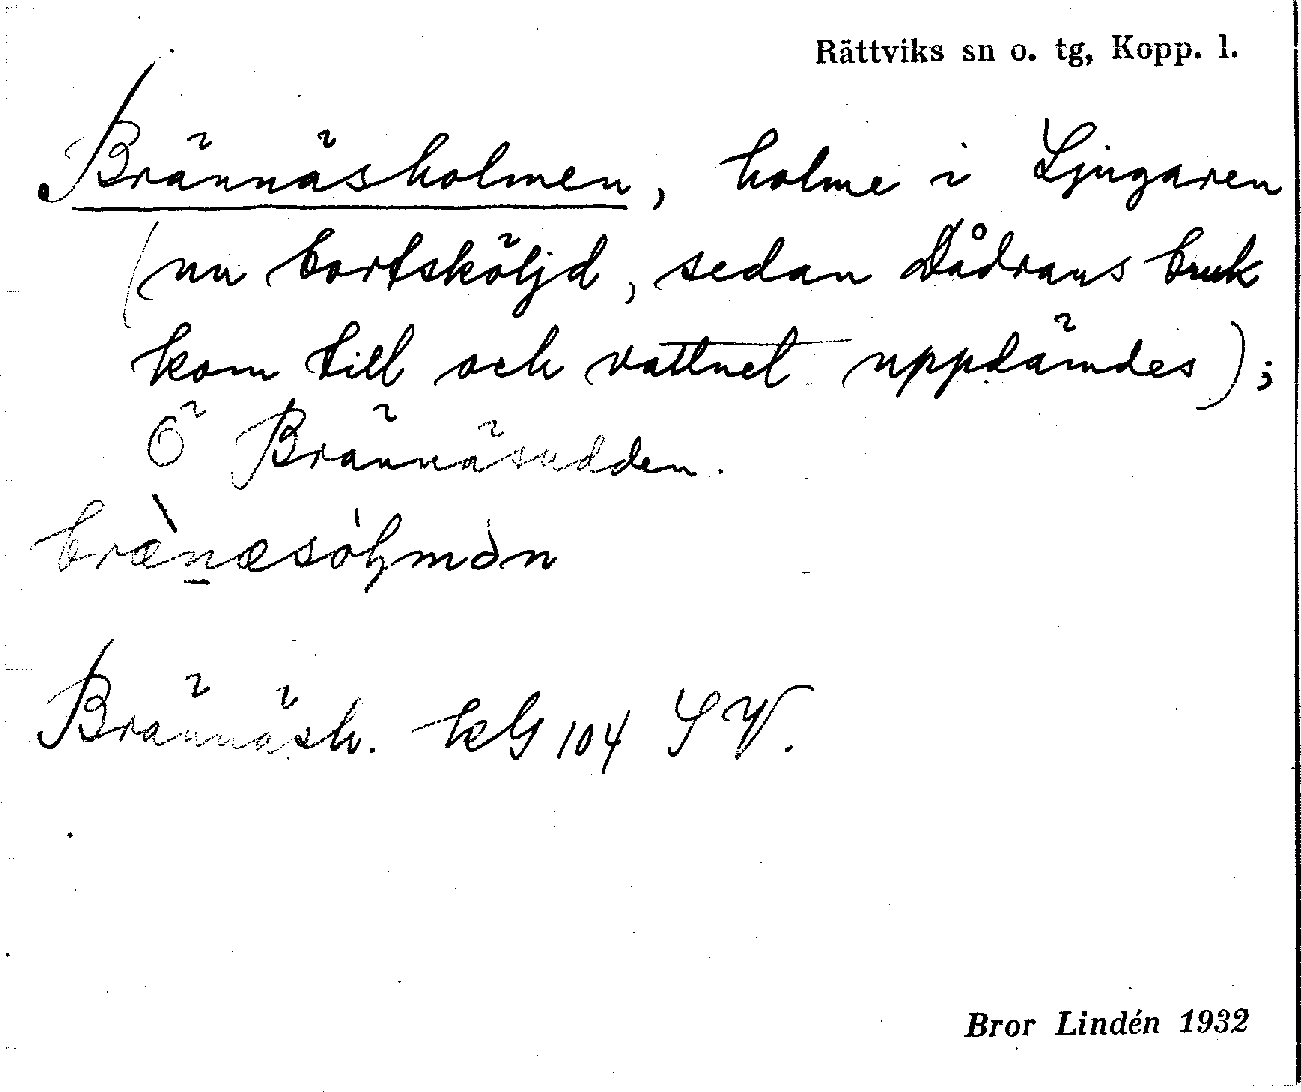 Rättviks sn o. tg, Kopp. l.
Brännäsholmen, holme i Ljugaren
(nu bortsköljd, sedan Dådrans bruk
kom till och vattnet uppdämdes);
Ö Brännäsudden.
Brännäsh. kG 104 SV.
Bror Lindén 1932